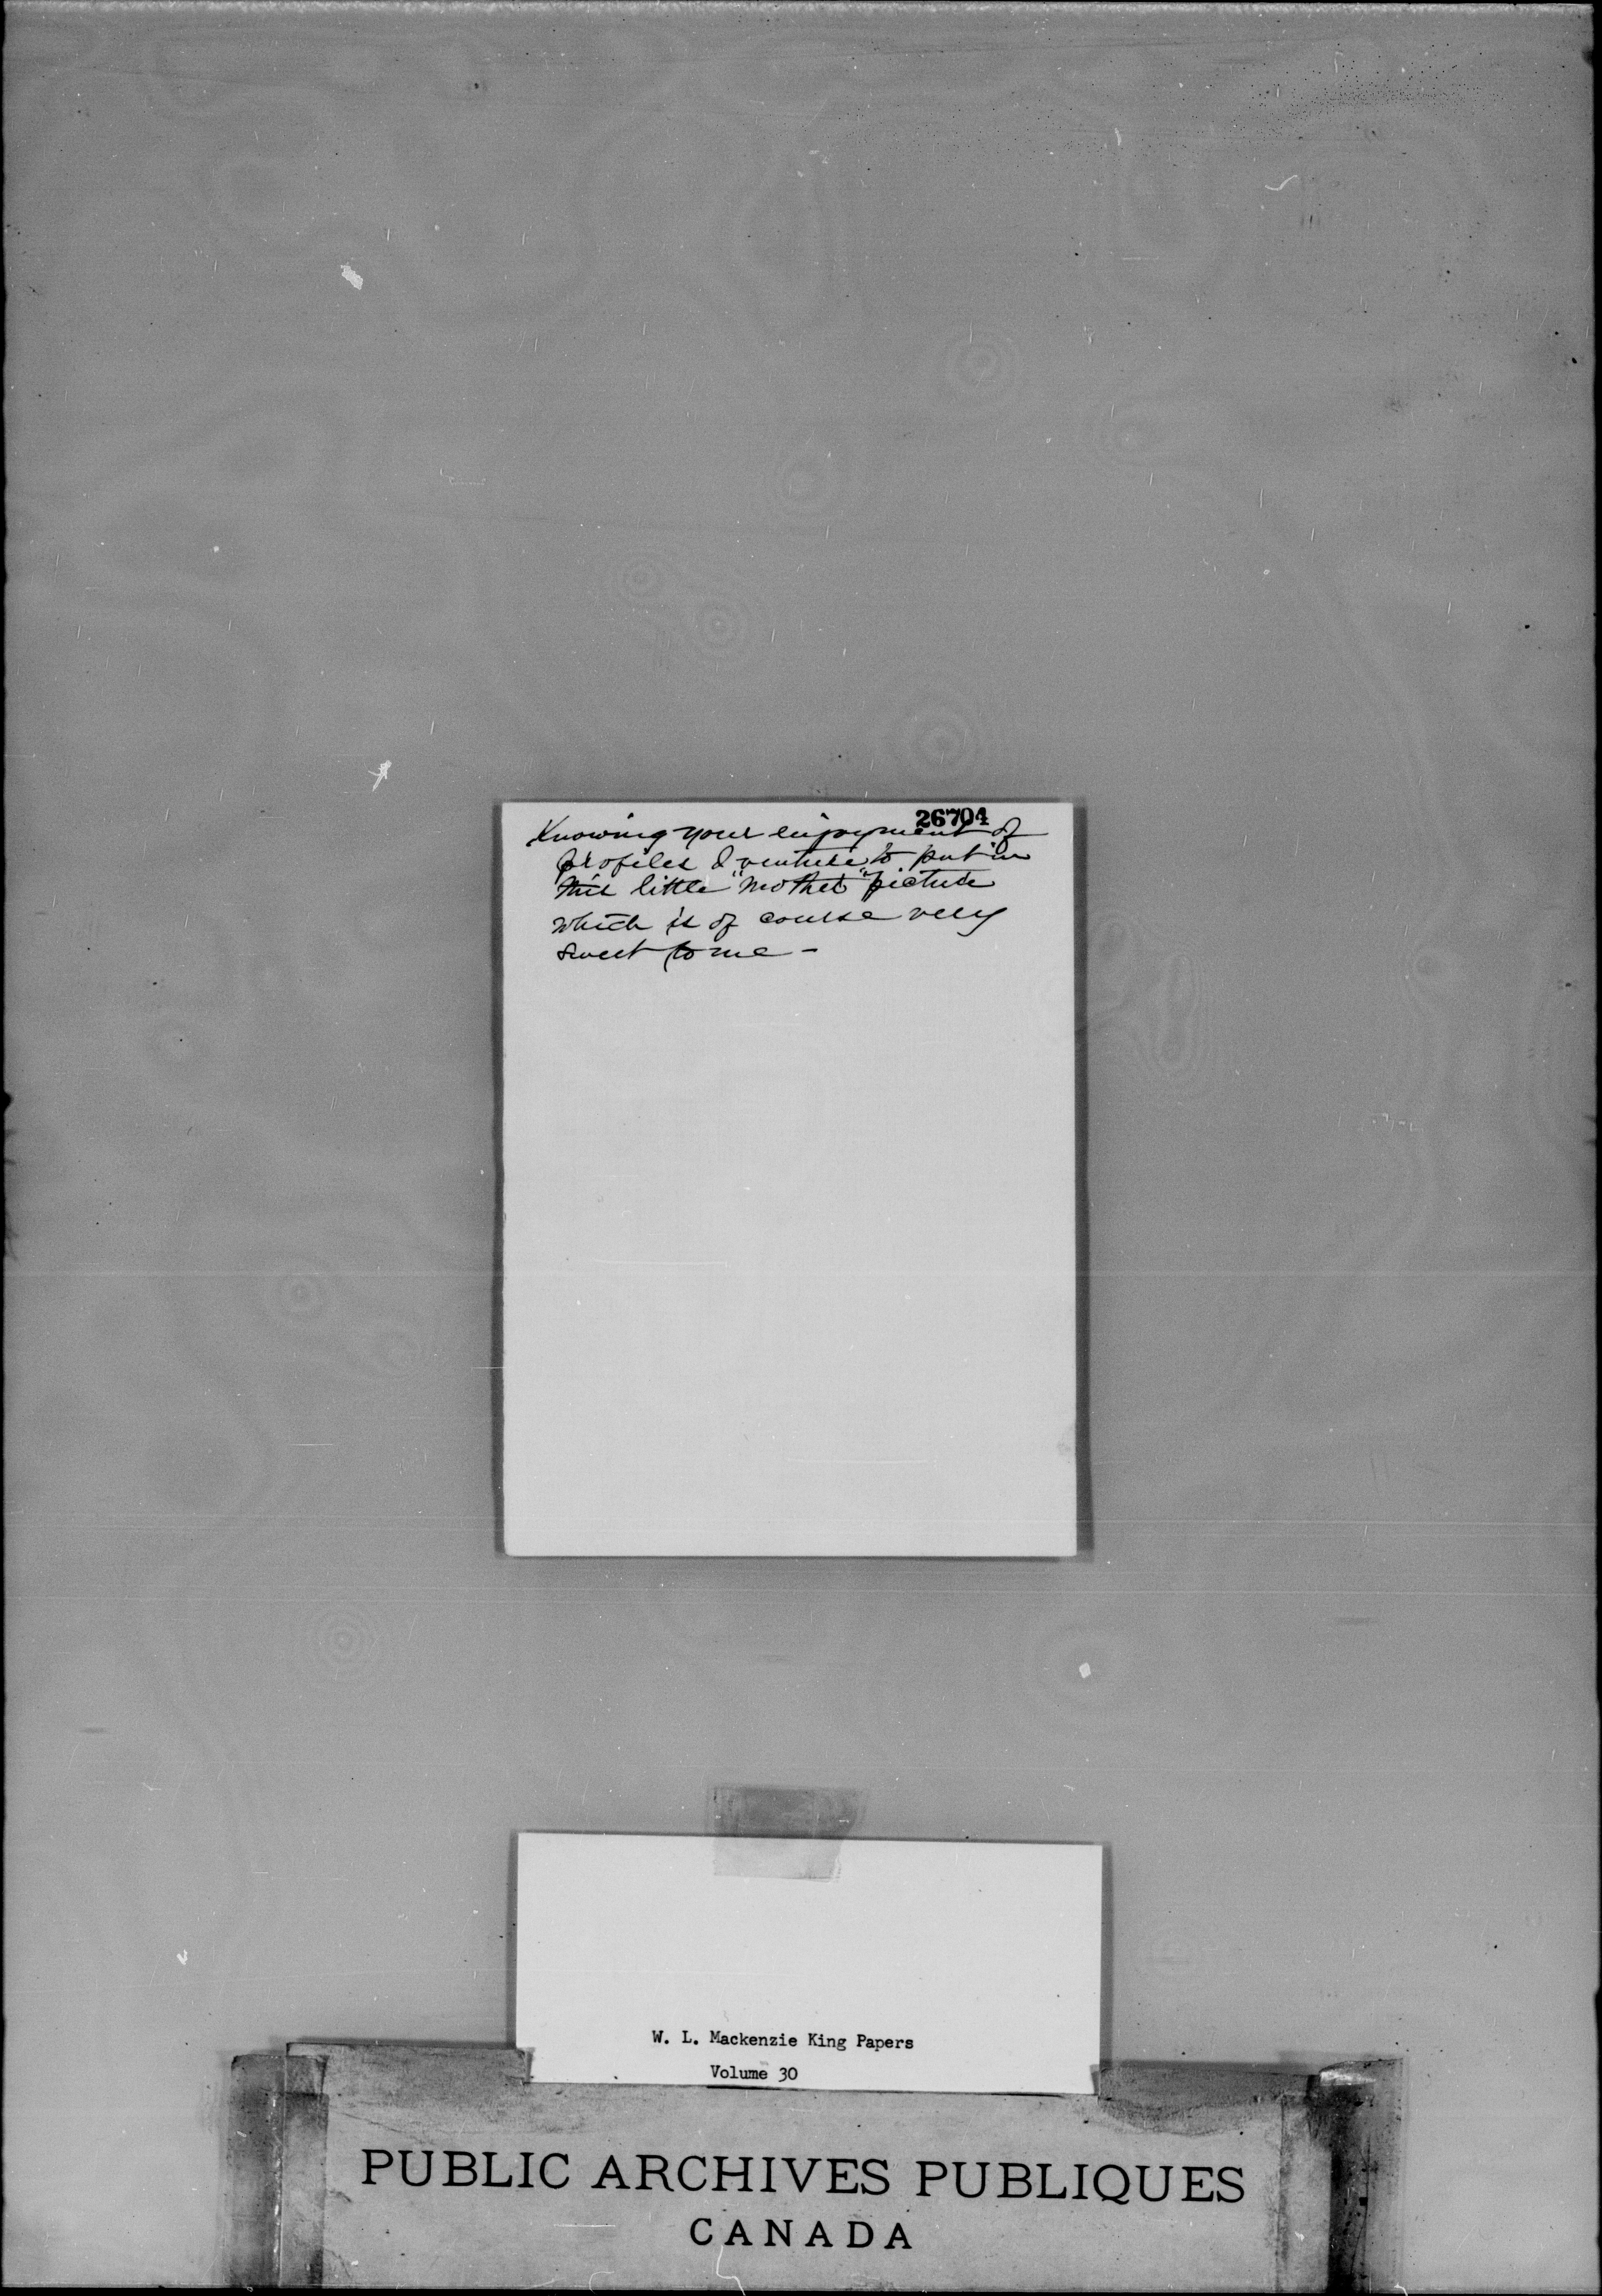 26704
Knowing your enjoyment of
profiles I venture to put in
this little "Mother" picture
which is of course very
sweet to me -
W. L. Mackenzie King Papers
Volume 30
PUBLIC ARCHIVES PUBLIQUES
CANADA